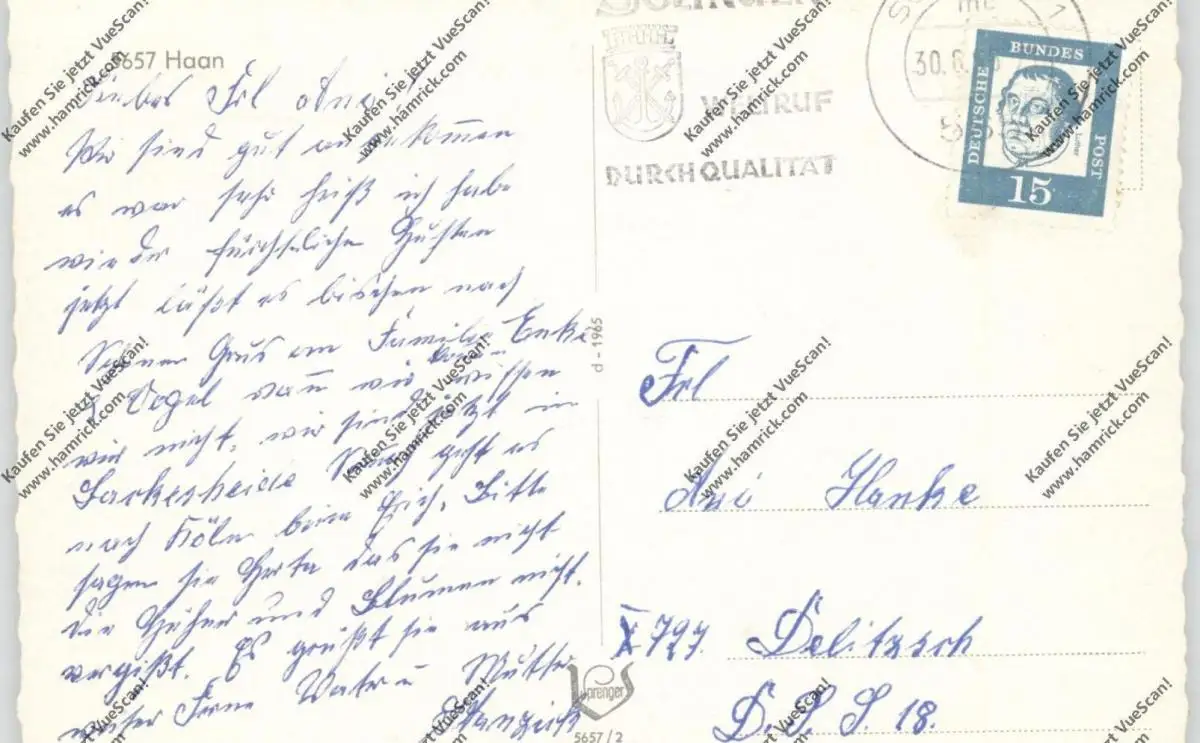 5657 Haan
Liebes Frl Ani!
Wir sind gut angekommen
es war sehr heiß ich habe
wieder fürchtliche Husten
jetzt läßt es bischen nach
Schöner Grus an Familie Enke
u Vogel wann wir komm wissen
wir nicht, wir sind jetzt in
nach geht es
nach Köln beim Erich, Bitte
sagen sie Herta das sie nicht
die Hüner und Blumen nicht.
vergißt. Es grüßt sie aus
weiter Ferne Vater u Mutter
d-1965
Sprenger
5657/2
SOLINGEN
WELTRUF
DURCH QUALITÄT
30.6.
DEUTSCHE BUNDES POST
Luther
15
Frl
Ani Hanke
X 727. Delitzsch
D. S. S. 18.
Kaufen Sie jetzt VueScan!
www.hamrick.com
Kaufen Sie jetzt VueScan!
www.hamrick.com
Kaufen Sie jetzt VueScan!
www.hamrick.com
Kaufen Sie jetzt VueScan!
www.hamrick.com
Kaufen Sie jetzt VueScan!
www.hamrick.com
Kaufen Sie jetzt VueScan!
www.hamrick.com
Kaufen Sie jetzt VueScan!
www.hamrick.com
Kaufen Sie jetzt VueScan!
www.hamrick.com